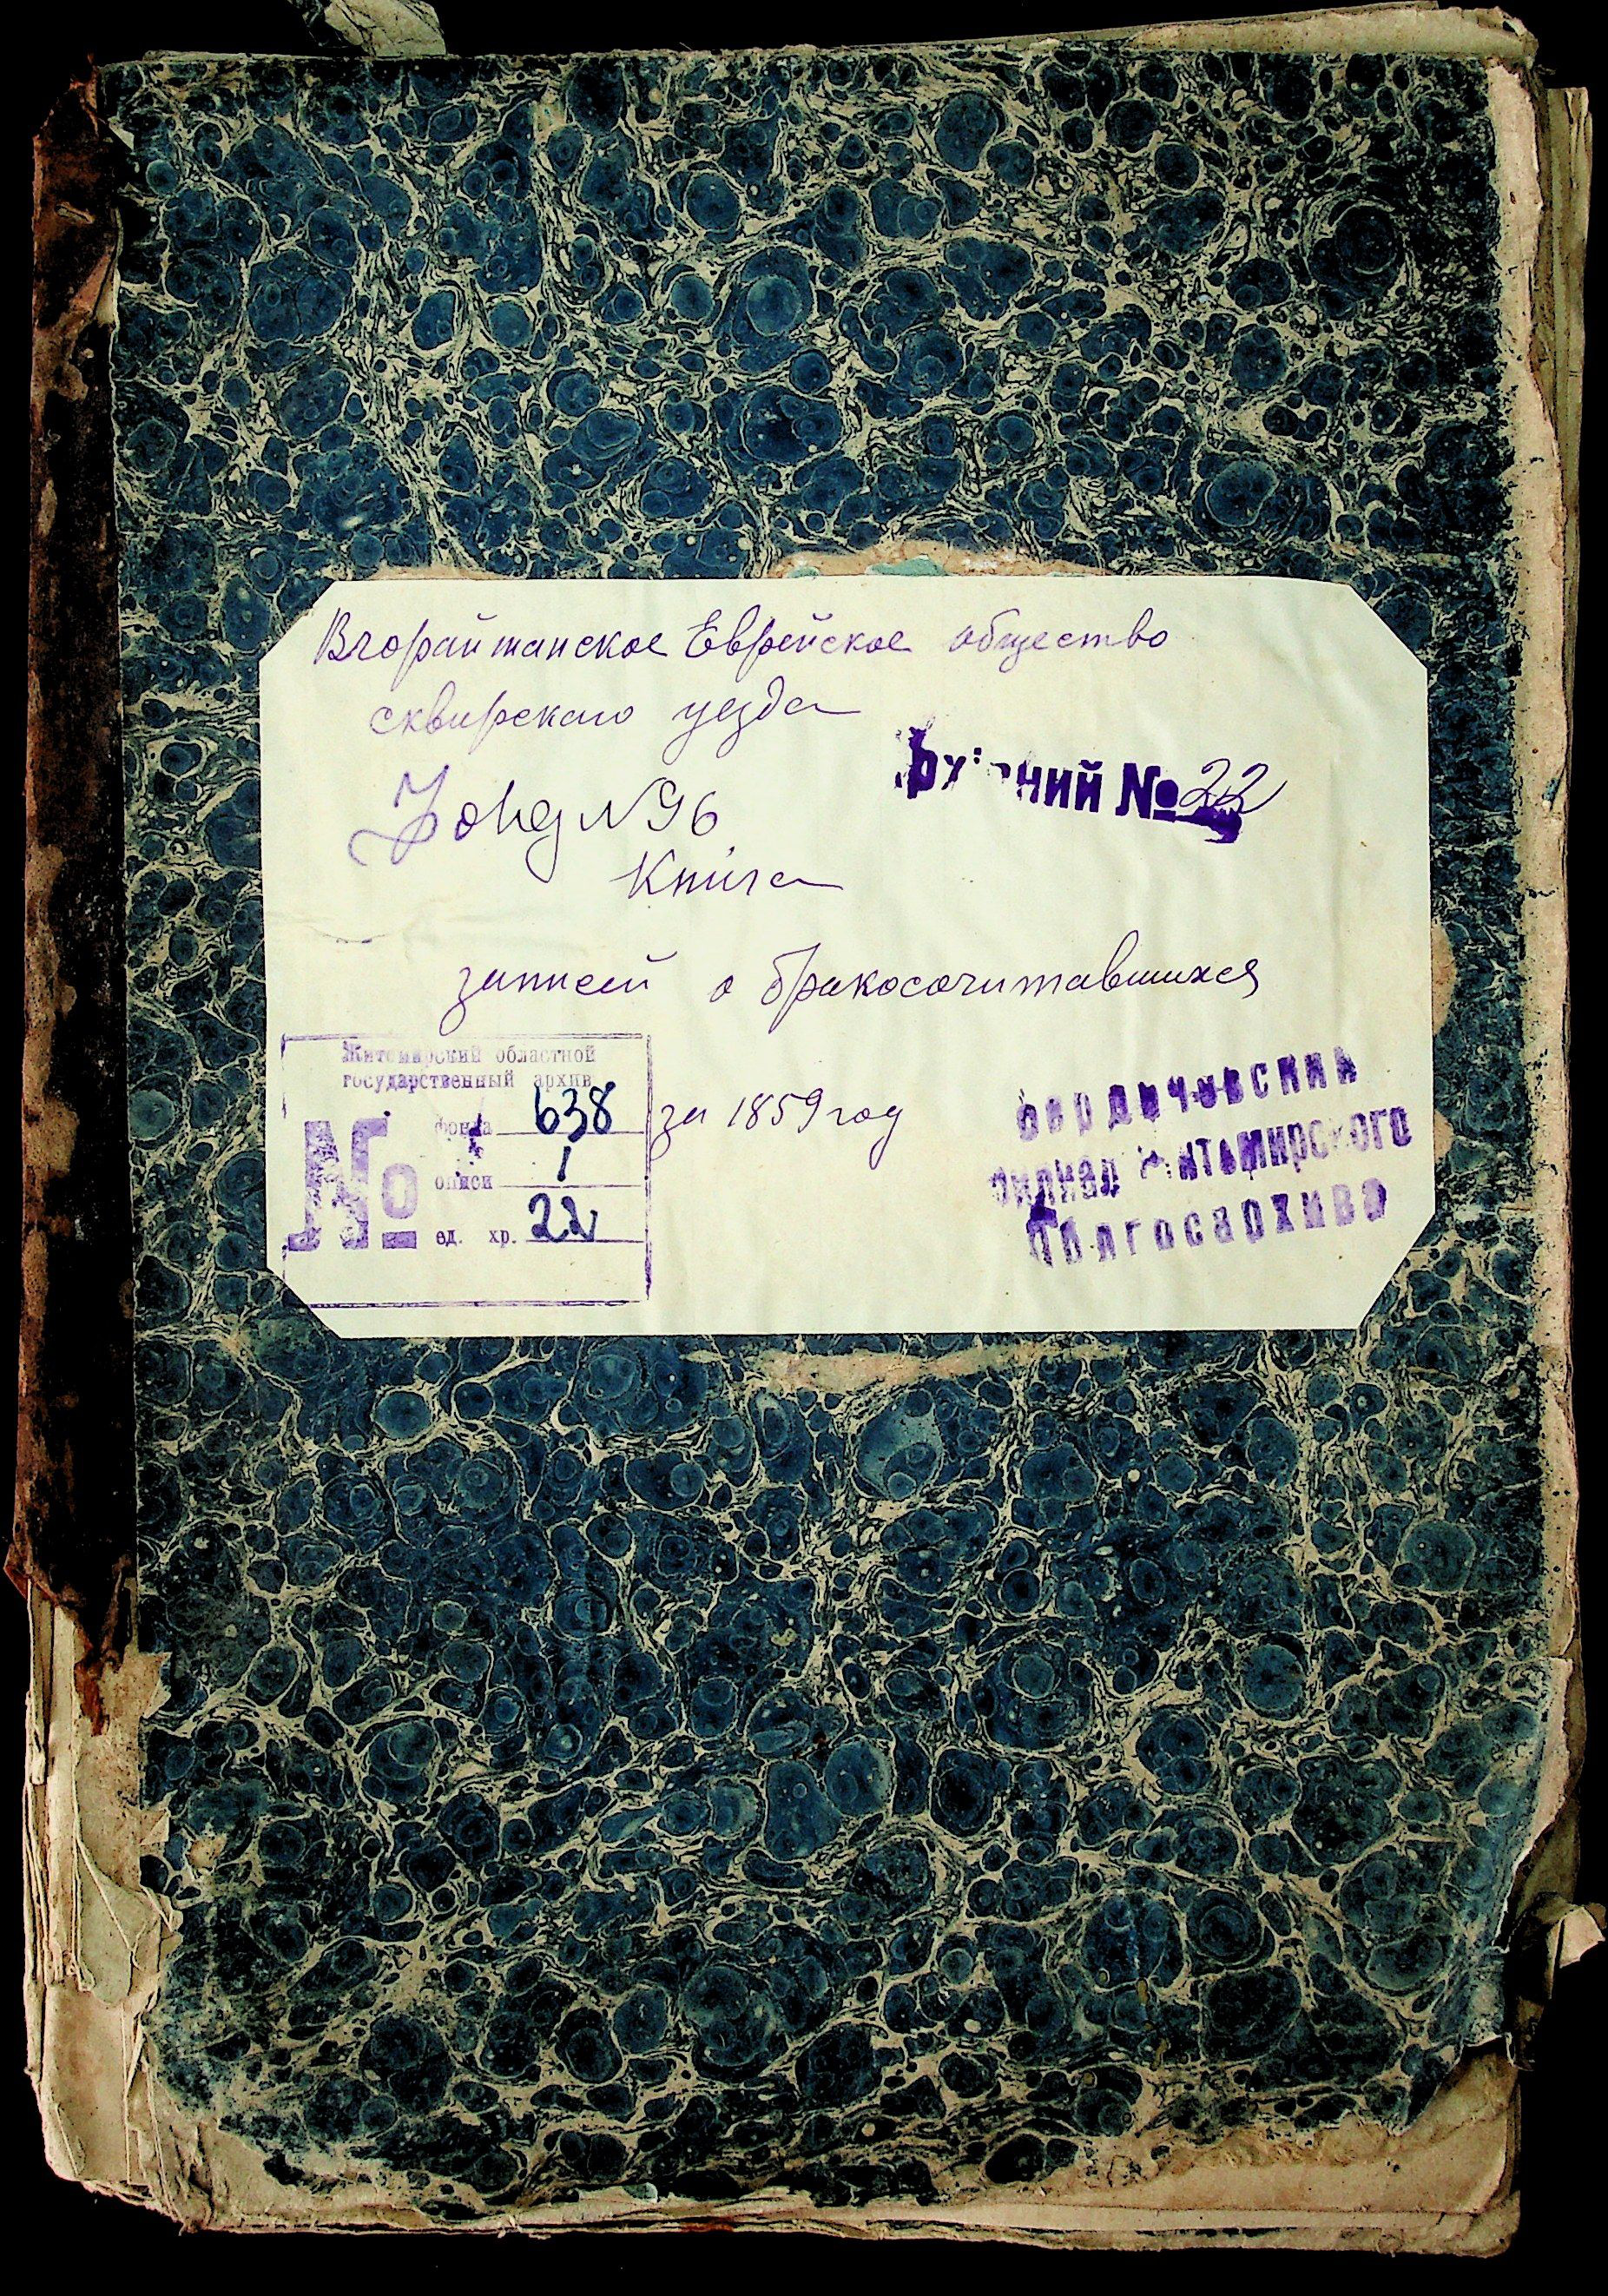 Вчорайшанское Еврейское общество
сквирского уезда
Фонд №96
№ 22
Книга
записей о бракосочитавшихся
за 1859 год
Житомирский областной
государственный архив
№
фонда 638
описи 1
ед. хр. 22
Бердичевский
филиал Житомирского
облгосархива